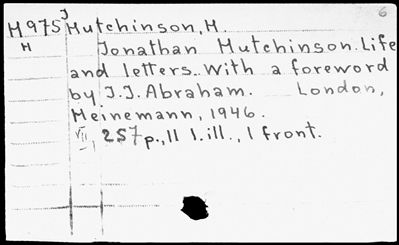 6
H975 J Hutchinson, H.
H Jonathan Hutchinson. Life
and letters. With a foreword
by J.J. Abraham. London,
Heinemann, 1946.
VII, 257p., 11 l. ill., 1 front.